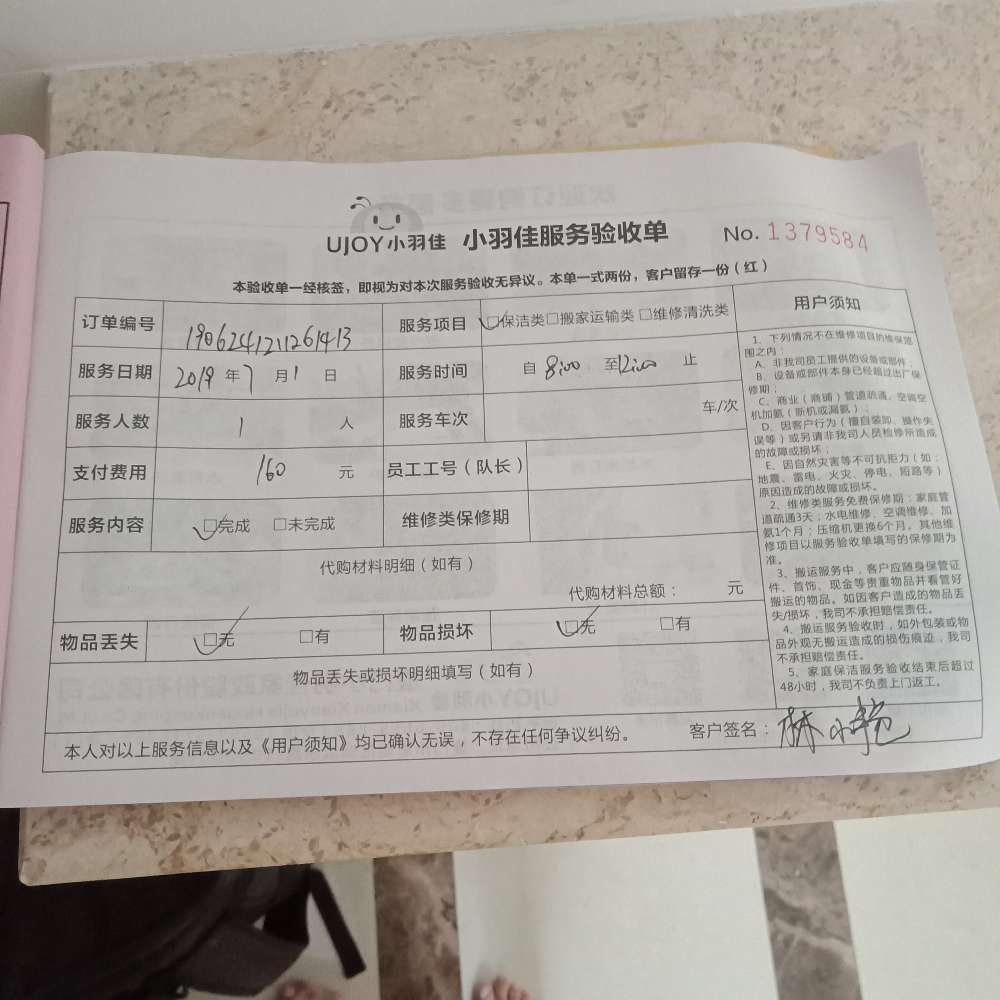 UJOY小羽佳 小羽佳服务验收单 No. 1379584
本验收单一经核签，即视为对本次服务验收无异议。本单一式两份，客户留存一份（红）
订单编号 1906241211261413 服务项目 □保洁类□搬家运输类 □维修清洗类
服务日期 2019 年 7 月 1 日 服务时间 自 8:00 至 12:00 止
服务人数 1 人 服务车次 车/次
支付费用 160 元 员工工号（队长）
服务内容 □完成 □未完成 维修类保修期
代购材料明细（如有）
代购材料总额： 元
物品丢失 □无 □有 物品损坏 □无 □有
物品丢失或损坏明细填写（如有）
本人对以上服务信息以及《用户须知》均已确认无误，不存在任何争议纠纷。 客户签名：林小
用户须知
1、下列情况不在维修项目的维保范
围之内：
A、非我司员工提供的设备或部件；
B、设备或部件本身已经超过出厂保
修期；
C、商业（商铺）管道疏通，空调空
机加氨（新机或漏氨）；
D、因客户行为（擅自装卸、操作失
误等）或另请非我司人员检修所造成
的故障或损坏；
E、因自然灾害等不可抗拒力（如：
地震、雷电、火灾、停电、短路等）
原因造成的故障或损坏。
2、维修类服务免费保修期：家庭管
道疏通3天；水电维修、空调维修、加
氨1个月；压缩机更换6个月。其他维
修项目以服务验收单填写的保修期为
准。
3、搬运服务中，客户应随身保管证
件、首饰、现金等贵重物品并看管好
搬运的物品。如因客户造成的物品丢
失/损坏，我司不承担赔偿责任。
4、搬运服务验收时，如外包装或物
品外观无搬运造成的损伤痕迹，我司
不承担赔偿责任。
5、家庭保洁服务验收结束后超过
48小时，我司不负责上门返工。